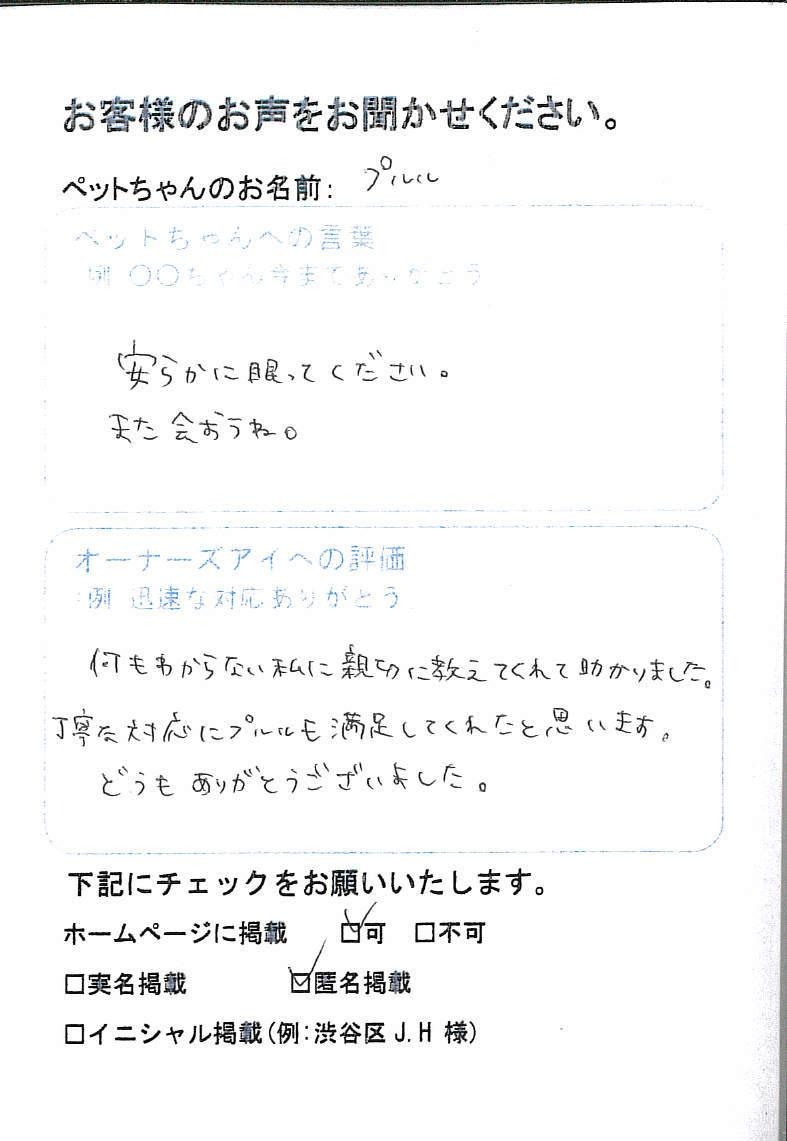 お客様のお声をお聞かせください。
ペットちゃんのお名前: プルル
ペットちゃんへの言葉
例 〇〇ちゃん今までありがとう
安らかに眠ってください。
また会おうね。
オーナーズアイへの評価
例 迅速な対応ありがとう
何もわからない私に親切に教えてくれて助かりました。
丁寧な対応にプルルも満足してくれたと思います。
どうもありがとうございました。
下記にチェックをお願いいたします。
ホームページに掲載 ☑可 □不可
□実名掲載 ☑匿名掲載
□イニシャル掲載(例:渋谷区 J.H 様)